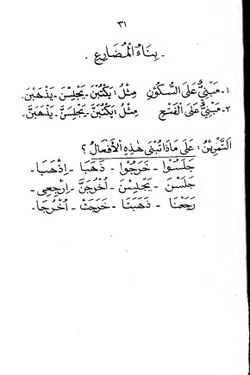 ٣١
. بِنَاءُ الْمُضَارِعِ .
١- مَبْنِيٌّ عَلَى السُّكُوْنِ مِثْلُ: يَكْتُبْنَ - يَجْلِسْنَ - يَذْهَبْنَ.
٢- مَبْنِيٌّ عَلَى الْفَتْحِ مِثْلُ: يَكْتُبَنَّ - يَجْلِسَنَّ - يَذْهَبَنَّ.
التَّمْرِيْنُ: عَلَى مَاذَا تُبْنَى هٰذِهِ الْأَفْعَالُ؟
جَلَسُوْا - خَرَجُوْا - ذَهَبَا - اِذْهَبَا -
جَلَسْنَ - يَجْلِسْنَ - اُخْرُجَنَّ - اِرْجِعِى -
رَجَعْنَا - ذَهَبَتَا - خَرَجَتْ - اُخْرُجَا -